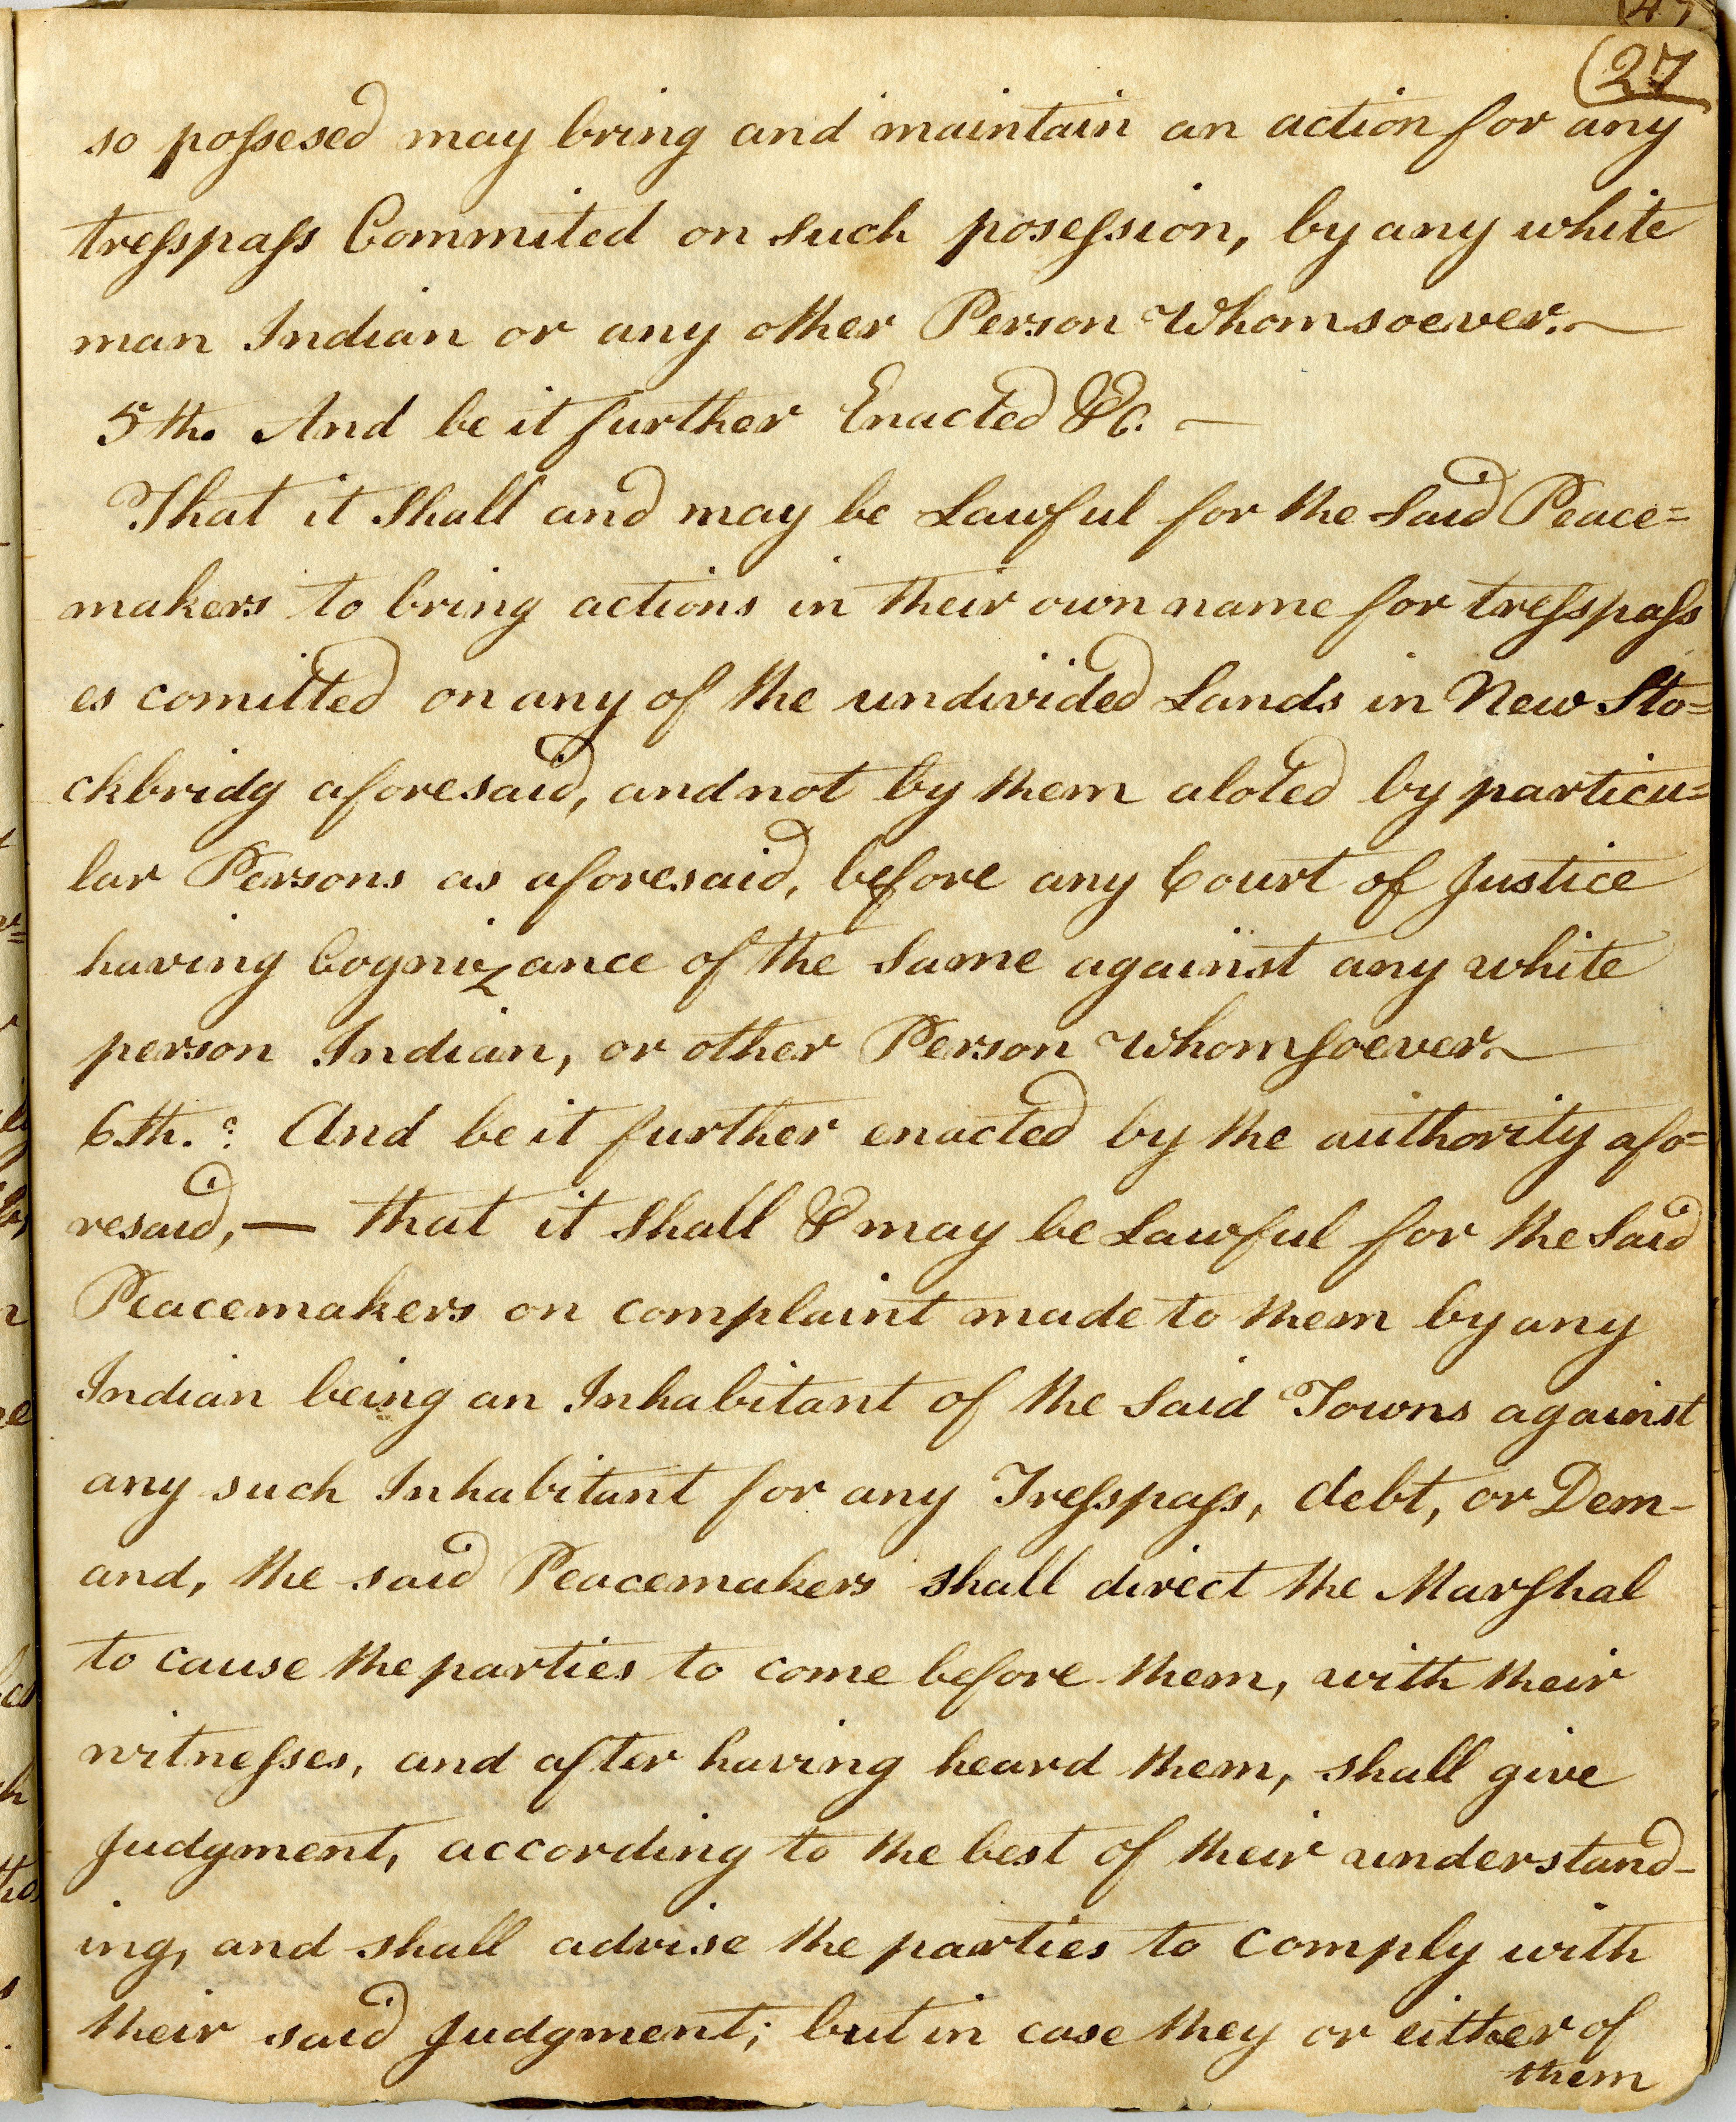 (27
so possesed may bring and maintain an action for any
tresspass Commited on such posession, by any white
man Indian or any other Person Whomsoever.—
5th. And be it further Enacted &c. —
That it Shall and may be Lawful for the Said Peace=
makers to bring actions in their own name for tresspass
es comitted on any of the undivided Lands in New Sto=
ckbridg aforesaid, and not by them aloted by particu=
lar Persons as aforesaid, before any Court of Justice
having Cognizance of the Same against any white
person Indian, or other Person Whomsoever.—
6th.: And be it further enacted by the authority afo=
resaid, — that it Shall & may be Lawful for the Said
Peacemakers on complaint made to them by any
Indian being an Inhabitant of the Said Towns against
any such Inhabitant for any Tresspass, debt, or Dem-
and, the said Peacemakers shall direct the Marshal
to cause the parties to come before them, with their
witnesses, and after having heard them, shall give
Judgment, according to the best of their understand-
ing, and shall advise the parties to comply with
their said Judgment; but in case they or either of
them